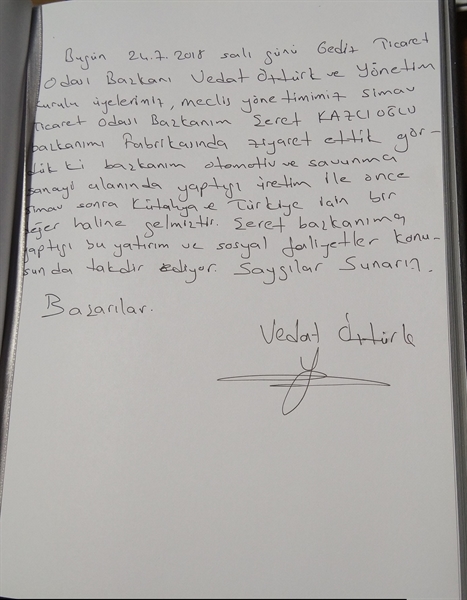 Bugün 24.7.2018 salı günü Gediz Ticaret
Odası Başkanı Vedat Öztürk ve Yönetim
kurulu üyelerimiz, meclis yönetimimiz simav
Ticaret Odası Başkanım Şeref KAZCIOĞLU
başkanımı Fabrikasında ziyaret ettik gör-
dük ki başkanım otomotiv ve savunma
sanayi alanında yaptığı üretim ile önce
simav sonra Kütahya ve Türkiye için bir
değer haline gelmiştir. Şeref başkanıma
yaptığı bu yatırım ve sosyal faliyetler konu-
sunda takdir ediyor. Saygılar Sunarım.
Başarılar.
Vedat Öztürk